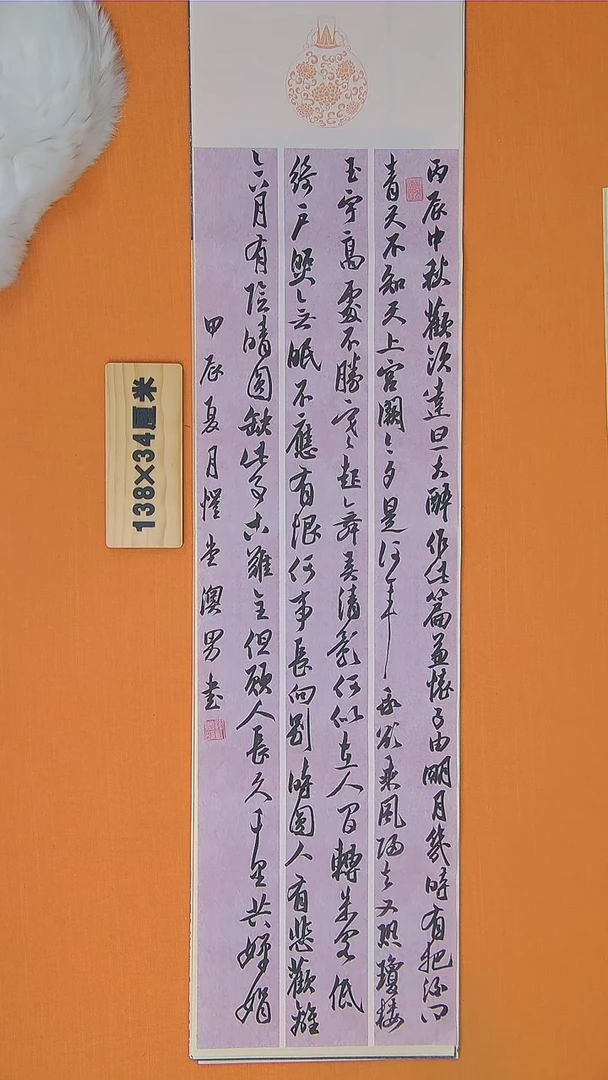 丙辰中秋歡飲達旦大醉作此篇兼懷子由明月幾時有把酒問
青天不知天上宮闕今夕是何年我欲乘風歸去又恐瓊樓
玉宇高處不勝寒起舞弄清影何似在人間轉朱閣低
綺戶照無眠不應有恨何事長向別時圓人有悲歡離
合月有陰晴圓缺此事古難全但願人長久千里共嬋娟
甲辰夏月愷堂澳男書
138X34厘米